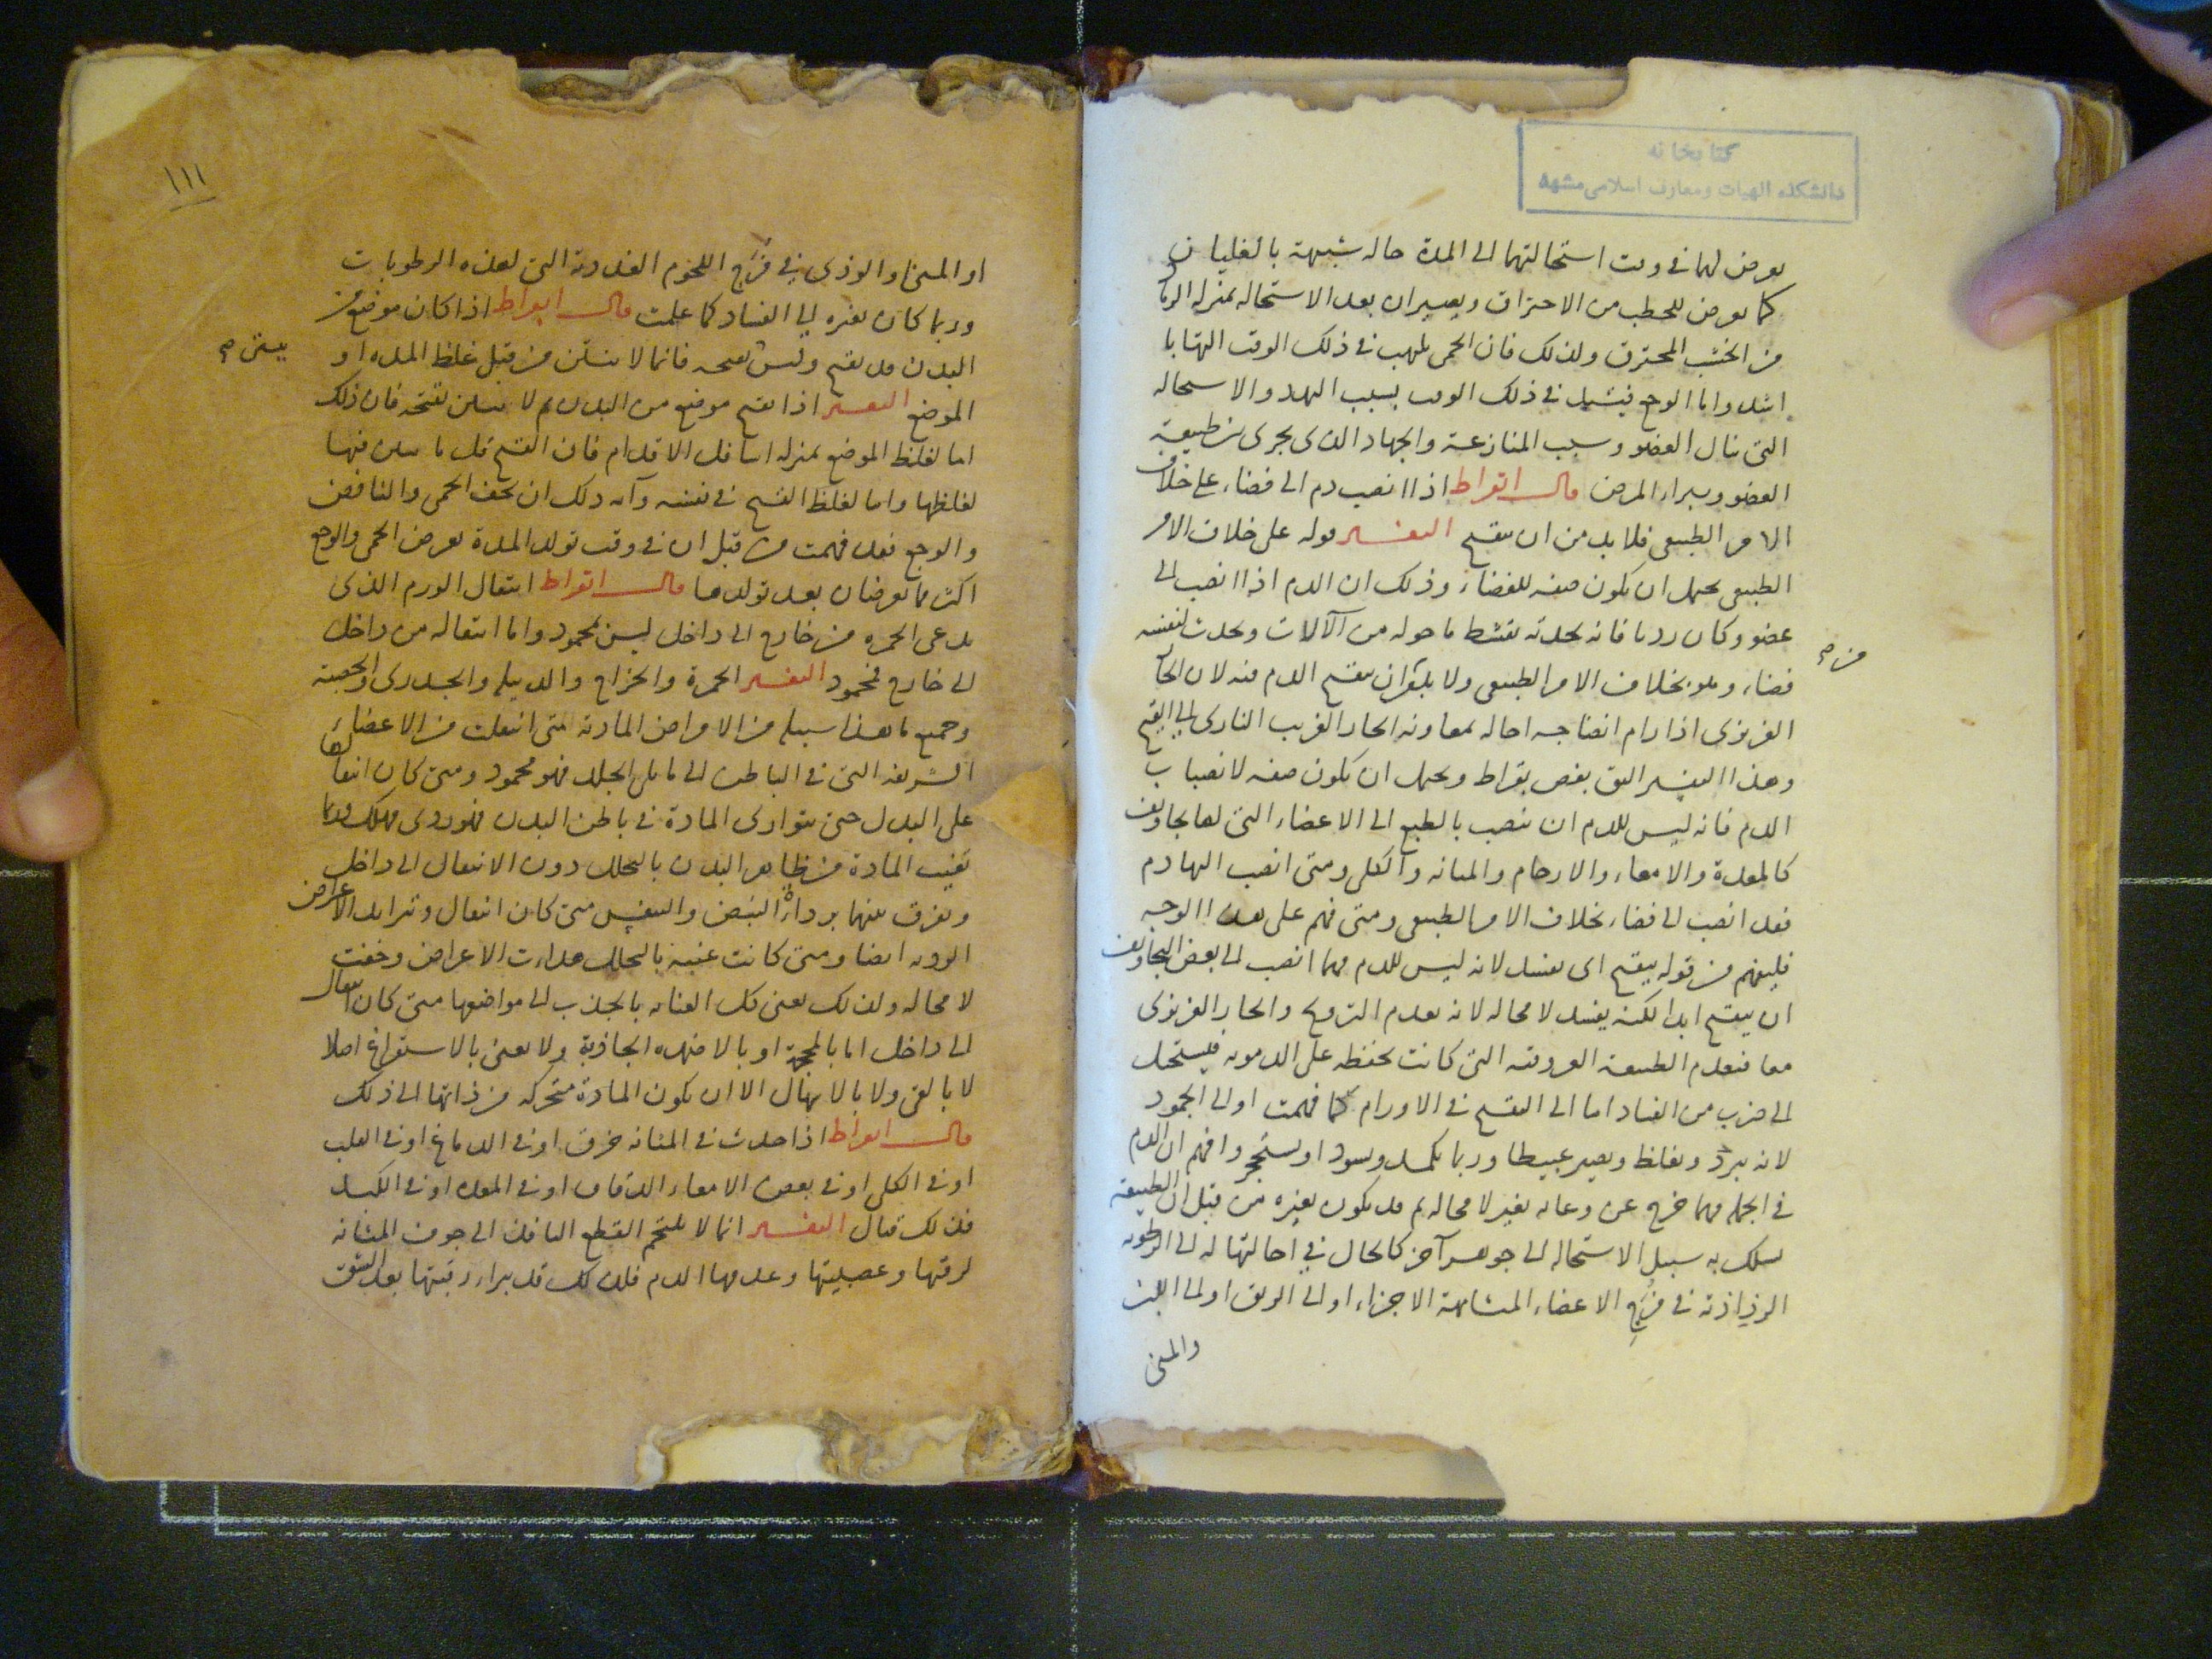 كتابخانه
دانشكده الهيات ومعارف اسلامى مشهد
يعرض لهما فى وقت استحالتهما الى المدة حاله شبيهة بالغليان
كما يعرض للحطب من الاحتراق ويصيران بعد الاستحاله بمنزله الرماد
من الخشب المحترق ولذلك فان الحمى تلهب فى ذلك الوقت التهابا
اشد واما الوجع فيشيل فى ذلك الوقت بسبب التمدد والاستحاله
التى تنال العضو وسبب المنازعة والجهاد الذى يجرى بين طبيعة
العضو وبين المرض قال ابقراط اذا انصب دم الى فضاء على خلاف
الامر الطبيعى فلابد من ان يتقيح التفسير قوله على خلاف الامر
الطبيعى يحتمل ان يكون صفه للفضاء وذلك ان الدم اذا انصب الى
عضو وكان رديا فانه بحدته يقشط ما حوله من الآلات ويحدث لنفسه
من صح
فضاء وهو بخلاف الامر الطبيعى ولا بد ان يتقيح الدم فيه لان الحار
الغريزى اذا رام انضاجه احاله بمعاونه الحار الغريب النارى الى القيح
وهذا التفسير اليق بغص بقراط ويحتمل ان يكون صفه لانصباب
الدم فانه ليس للدم ان ينصب بالطبع الى الاعضاء التى لها تجاويف
كالمعدة والامعاء والارحام والمثانه والكلى ومتى انصب اليها دم
فقد انصب الى فضاء بخلاف الامر الطبيعى ومتى فهم على هذا الوجه
فليفهم من قوله يتقيح اى يفسد لانه ليس للدم مهما انصب الى بعض التجاويف
ان يتقيح ابدا لكنه يفسد لا محاله لانه يعدم التروح والحار الغريزى
معا فيعدم الطبيعة العروقيه التى كانت تحفظه على الدمويه فيستحيل
الى ضرب من الفساد اما الى التقيح فى الاورام كما فهمت او الى الجمود
لانه يبرد ويغلظ ويصير عبيطا وربما يكمد ويسود او يستحجر وافهم ان الدم
فى الجمله مهما خرج عن وعائه تغير لا محاله ثم قد يكون تغيره من قبل ان الطبيعة
تسلك به سبيل الاستحاله الى جوهر آخر كالحال فى احالتها له الى الرطوبه
الرذاذية فى فرج الاعضاء المتشابهة الاجزاء او الى الريق او الى اللبن
والمنى
١١١
او المنى والوذى فى فرج اللحوم الغددية التى لهذه الرطوبات
وربما كان تغيره الى الفساد كما علمت قال ابقراط اذا كان موضع من
البدن قد تقيح وليس تقيحه فانما لا يتبين من قبل غلظ المده او
يتبين صح
الموضع التفسير اذا تقيح موضع من البدن ثم لا يتبين تقيحه فان ذلك
اما لغلظ الموضع بمنزله اسافل الاقدام فان القيح قل ما يتبين فيها
لغلظها واما لغلظ القيح فى نفسه وآيه ذلك ان تخف الحمى والنافض
والوجع فقد فهمت من قبل ان فى وقت تولد المدة يعرض الحمى والوجع
اكثر مما يعرضان بعد تولدها قال ابقراط انتقال الورم الذى
يدعى الحمره من خارج الى داخل ليس بمحمود واما انتقاله من داخل
الى خارج فمحمود التفسير الحمرة والخراج والدبيله والجدرى والحصبة
وجميع ما هذا سبيله من الامراض المادية متى انتقلت من الاعضاء
الشريفه التى فى الباطن الى ما يلى الجلد فهو محمود ومتى كان انتقالها
على البدل حتى يتوارى المادة فى باطن البدن فهو ردى مهلك وربما
تغيب المادة من ظاهر البدن بالتحلل دون الانتقال الى داخل
ويفرق بينهما برداءة النبض والتنفس متى كان انتقال وتزايد الاعراض
الرديه ايضا ومتى كانت غيبته بالتحلل هدات الاعراض وخفت
لا محاله ولذلك يعنى كل العنايه بالجذب الى مواضعها متى كان انتقال
الى داخل اما بالمحجمة او بالاضمده الجاذبة ولا يعنى بالاستفراغ اصلا
لا بالقى ولا بالاسهال الا ان يكون المادة متحركه من ذاتها الى ذلك
قال ابقراط اذا حدث فى المثانه خرق او فى الدماغ او فى القلب
او فى الكلى او فى بعض الامعاء الدقاق او فى المعده او فى الكبد
فذلك قتال التفسير انما لا يلتحم القطع النافذ الى جوف المثانه
لرقتها وعصبيتها وعدمها الدم فلذلك قد يبرا رقبتها بعد الشق